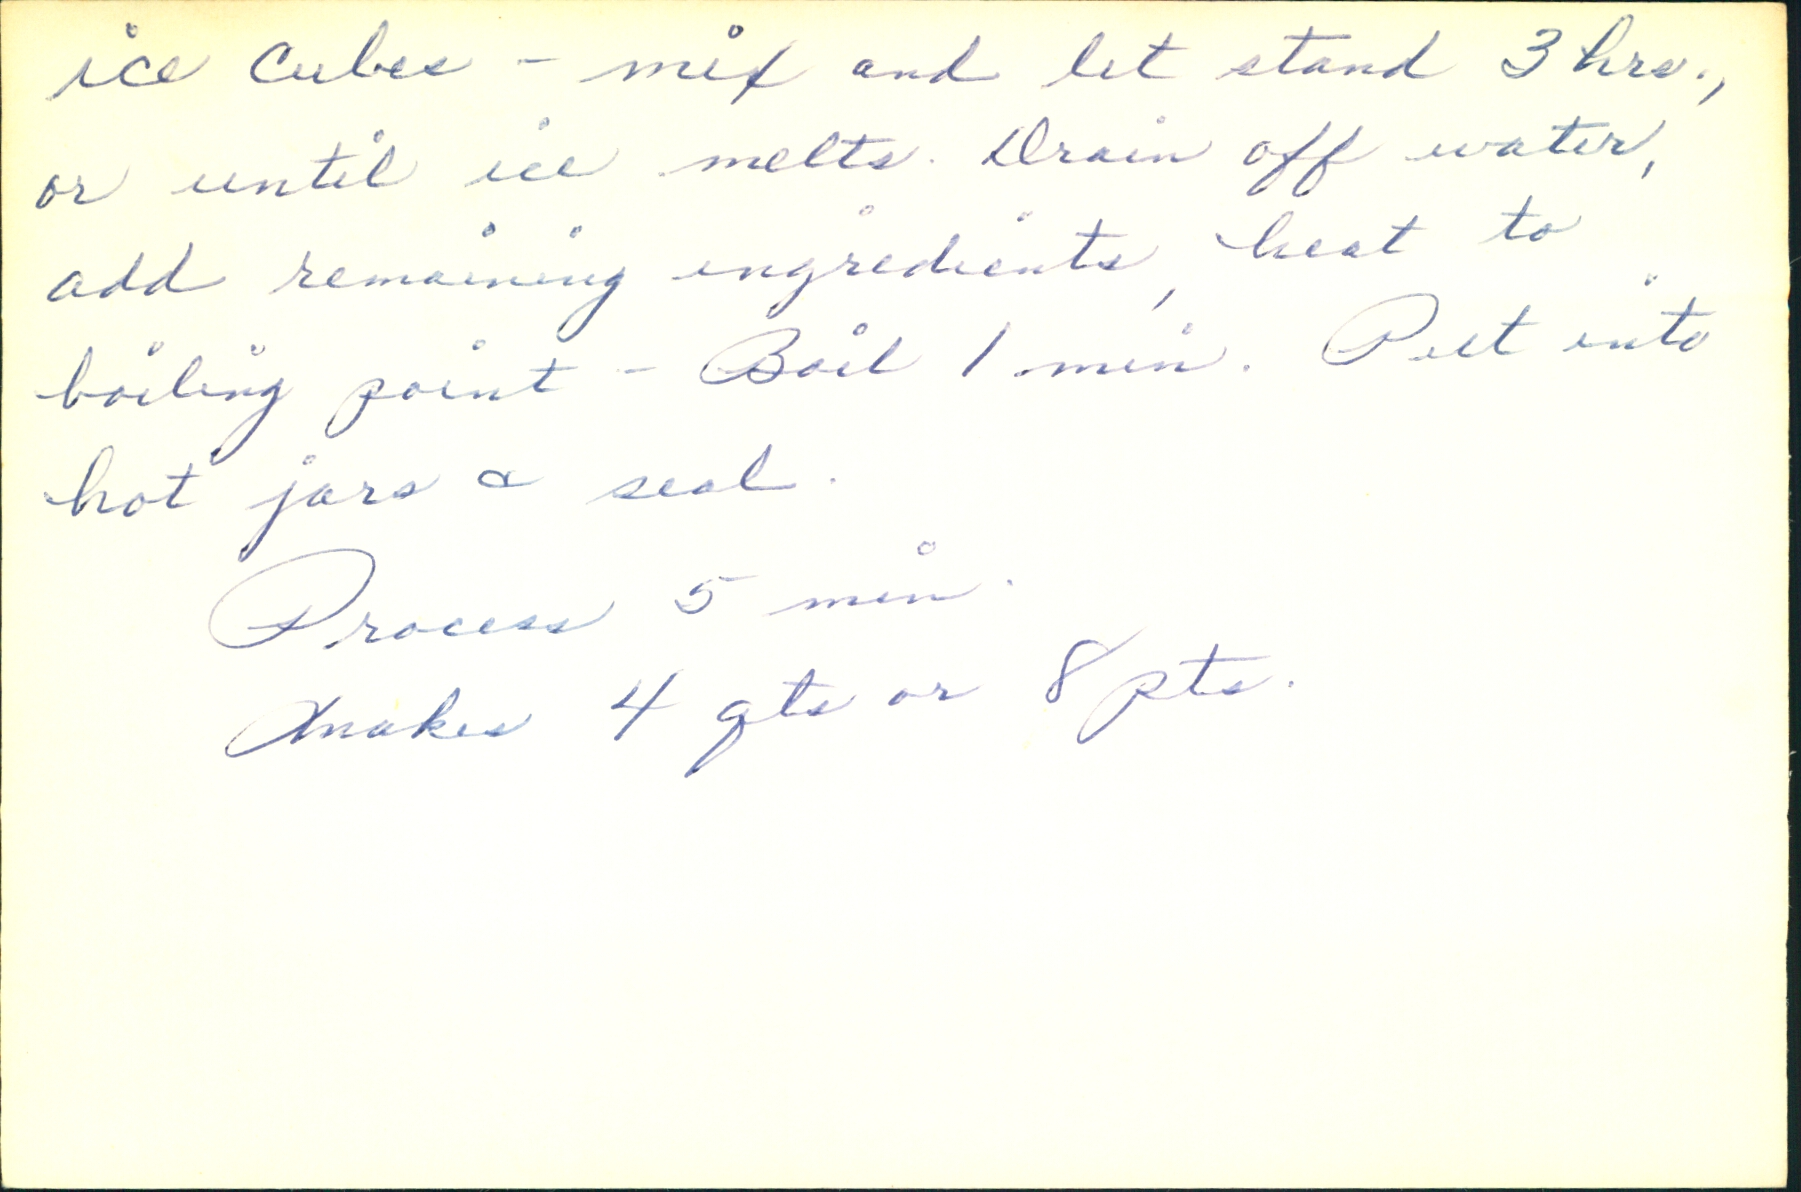 ice cubes - mix and let stand 3 hrs.,
or until ice melts. Drain off water,
add remaining ingredients, heat to
boiling point - Boil 1 min. Put into
hot jars & seal.
Process 5 min.
Makes 4 qts or 8 pts.